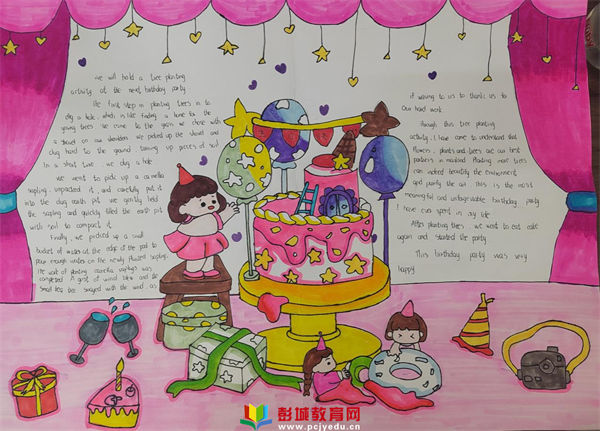 We will hold a tree planting
activity at the next birthday party
The first step in planting trees is to
dig a hole, which is like finding a home for the
young trees. We came to the grass we chose with
a shovel on our shoulders. We picked up the shovel and
dug hard to the ground, turning up pieces of soil
In a short time, we dig a hole
We went to pick up a camellia
sapling, unpacked it, and carefully put it
into the dug earth pit. We quickly held
the sapling and quickly filled the earth pit
with soil to compact it.
Finally, we picked up a small
bucket of water at the edge of the pool to
pour enough water on the newly planted sapling.
The work of planting camellia saplings was
completed. A gust of wind blew and the
small tree swayed with the wind, as
if waving to us to thank us for
Our hard work.
Through this tree planting
activity, I have come to understand that
flowers, plants and trees are our best
partners in mankind. Planting more trees
can indeed beautify the environment
and purify the air. This is the most
meaningful and unforgettable birthday party
I have ever spent in my life
After planting trees, we went to eat cake
again and started the party.
This birthday party was very
happy
彭城教育网
www.pcjyedu.cn